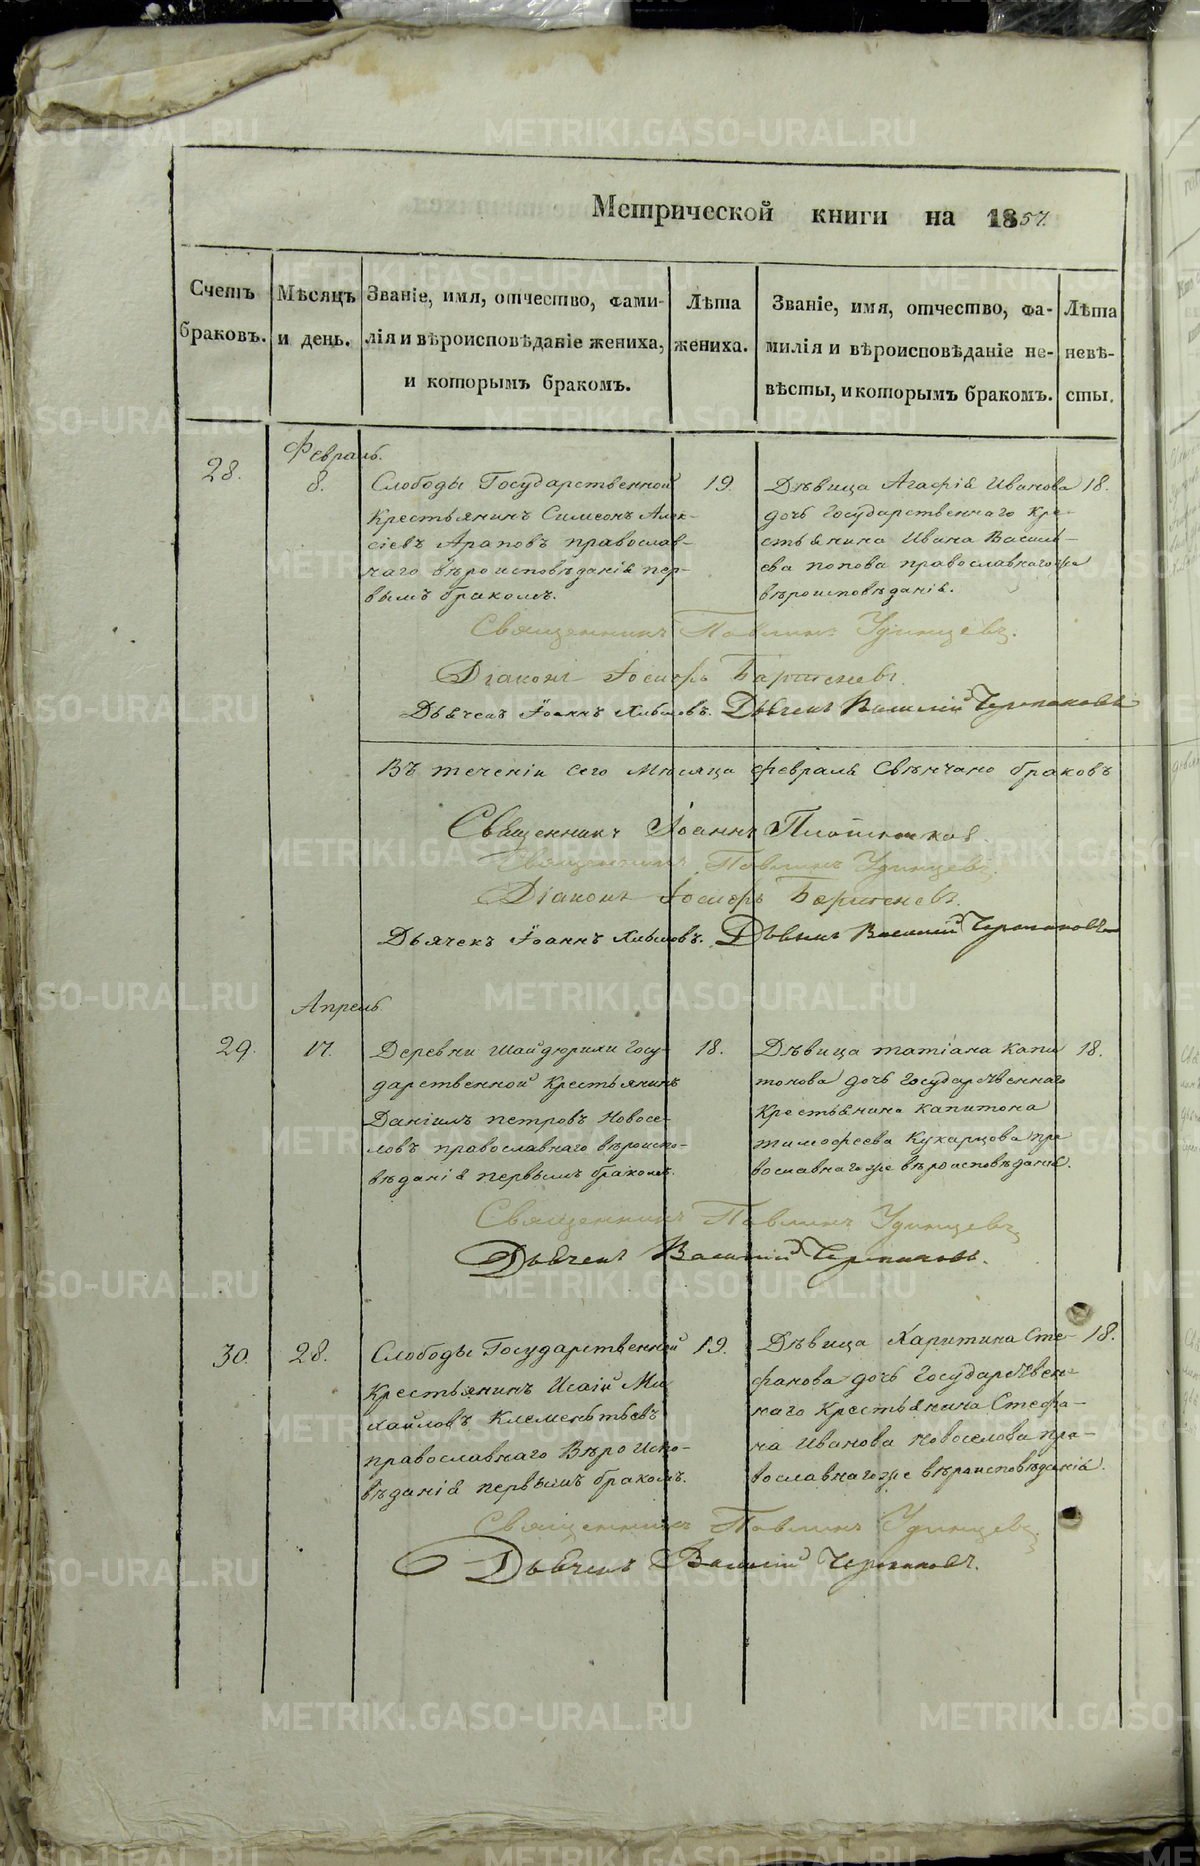 Метрической книги на 1857.
Счетъ браковъ.
Мѣсяцъ и день.
Званіе, имя, отчество, фами-
лія и вѣроисповѣданіе жениха,
и которымъ бракомъ.
Лѣта жениха.
Званіе, имя, отчество, фа-
милія и вѣроисповѣданіе не-
вѣсты, и которымъ бракомъ.
Лѣта невѣ-
сты.
Февраль.
28.
8.
Слободы Государственной
Крестьянинъ Симеонъ Алек-
сіевъ Араповъ православ-
наго вѣроисповѣданія пер-
вымъ бракомъ.
19.
Дѣвица Агафія Иванова
дочь Государственнаго Кре-
стьянина Ивана Василь-
ева попова православнагоже
вѣроисповѣданія.
18.
Священникъ Павлинъ Удинцевъ.
Діаконъ Іосифъ
Дьячекъ Іоаннъ Дьячекъ Василій Черепановъ
Въ теченіи сего Мѣсяца февраля свѣнчано браковъ
Священникъ Іоаннъ Плотников.
Священникъ Павлинъ Удинцевъ.
Діаконъ Іосифъ
Дьячекъ Іоаннъ Дьячекъ Василій Черепановъ
Апрель
29.
17.
Деревни Шайдурихи Госу-
дарственной Крестьянинъ
Даніилъ петровъ Новосе-
ловъ православнаго вѣроиспо-
вѣданія первымъ бракомъ.
18.
Дѣвица татіана Капи
тонова дочь Государственнаго
Крестьянина Капитона
тимофеева Кухарцова пра
вославнагоже вѣроисповѣданія.
18.
Священникъ Павлинъ Удинцевъ
Дьячекъ Василій Черепановъ.
30.
28.
Слободы Государственной
Крестьянинъ Исаій Ми
хайловъ Клементьевъ
православнаго Вѣроиспо-
вѣданія первымъ бракомъ.
19.
Дѣвица Харитина Сте-
фанова дочь Государствен-
наго Крестьянина Стефа-
на Иванова Новоселова пра-
вославнагоже вѣроисповѣданія.
18.
Священникъ Павлинъ Удинцевъ.
Дьячекъ Василій Черепановъ.
METRIKI.GASO-URAL.RU